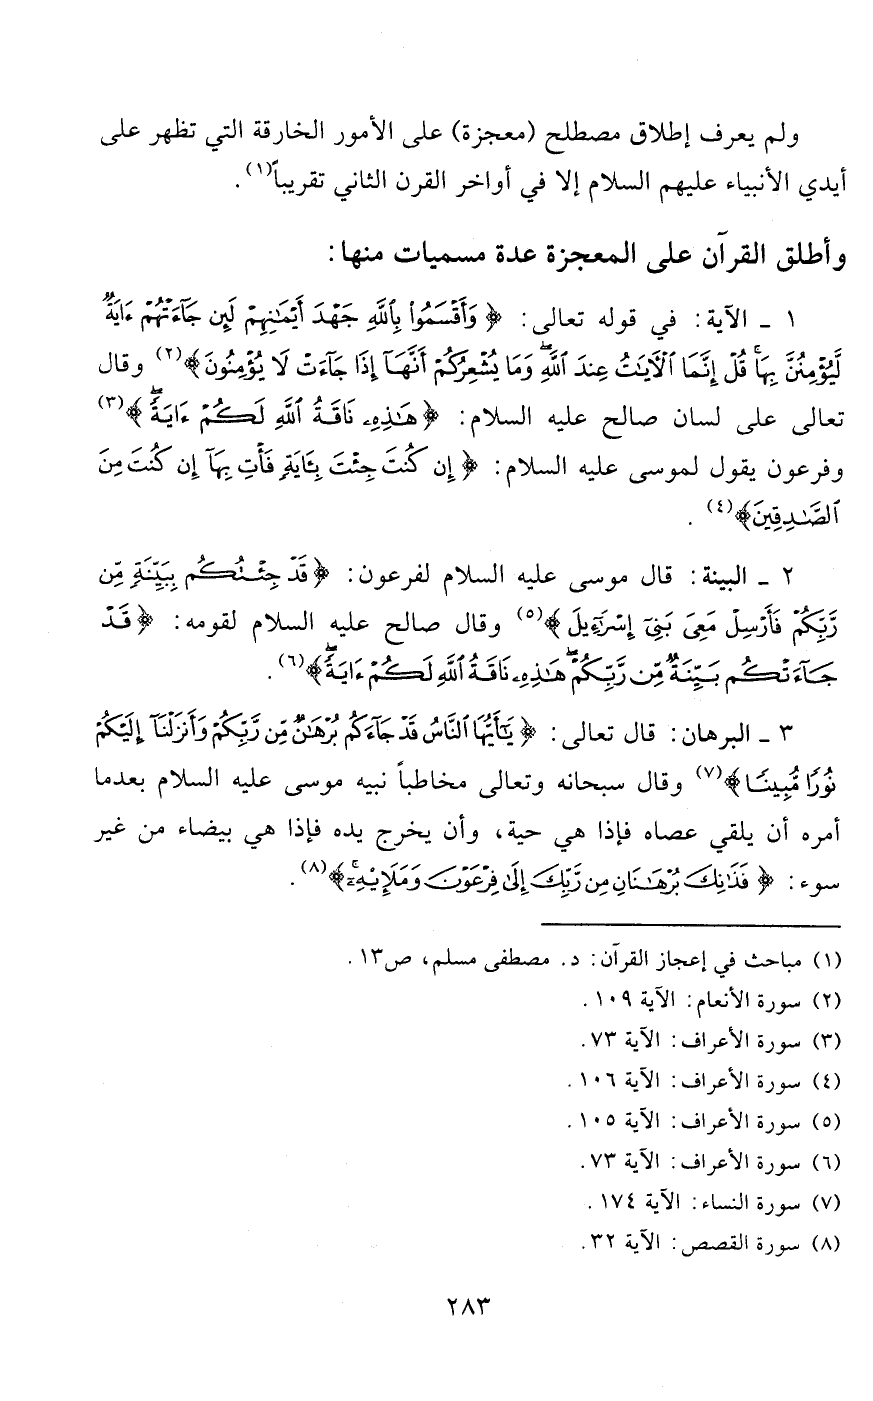 ولم يعرف إطلاق مصطلح (معجزة) على الأمور الخارقة التي تظهر على
أيدي الأنبياء عليهم السلام إلا في أواخر القرن الثاني تقريباً(١).
وأطلق القرآن على المعجزة عدة مسميات منها:
١ ـ الآية: في قوله تعالى: ﴿وَأَقْسَمُوا۟ بِٱللَّهِ جَهْدَ أَيْمَـٰنِهِمْ لَئِن جَآءَتْهُمْ ءَايَةٌ
لَّيُؤْمِنُنَّ بِهَا ۚ قُلْ إِنَّمَا ٱلْـَٔايَـٰتُ عِندَ ٱللَّهِ ۖ وَمَا يُشْعِرُكُمْ أَنَّهَآ إِذَا جَآءَتْ لَا يُؤْمِنُونَ﴾(٢) وقال
تعالى على لسان صالح عليه السلام: ﴿هَـٰذِهِۦ نَاقَةُ ٱللَّهِ لَكُمْ ءَايَةً ۖ﴾(٣)
وفرعون يقول لموسى عليه السلام: ﴿إِن كُنتَ جِئْتَ بِـَٔايَةٍ فَأْتِ بِهَآ إِن كُنتَ مِنَ
ٱلصَّـٰدِقِينَ﴾(٤).
٢ ـ البينة: قال موسى عليه السلام لفرعون: ﴿قَدْ جِئْتُكُم بِبَيِّنَةٍ مِّن
رَّبِّكُمْ فَأَرْسِلْ مَعِىَ بَنِىٓ إِسْرَٰٓءِيلَ﴾(٥) وقال صالح عليه السلام لقومه: ﴿قَدْ
جَآءَتْكُم بَيِّنَةٌ مِّن رَّبِّكُمْ ۖ هَـٰذِهِۦ نَاقَةُ ٱللَّهِ لَكُمْ ءَايَةً ۖ﴾(٦).
٣ ـ البرهان: قال تعالى: ﴿يَـٰٓأَيُّهَا ٱلنَّاسُ قَدْ جَآءَكُم بُرْهَـٰنٌ مِّن رَّبِّكُمْ وَأَنزَلْنَآ إِلَيْكُمْ
نُورًا مُّبِينًا﴾(٧) وقال سبحانه وتعالى مخاطباً نبيه موسى عليه السلام بعدما
أمره أن يلقي عصاه فإذا هي حية، وأن يخرج يده فإذا هي بيضاء من غير
سوء: ﴿فَذَٰنِكَ بُرْهَـٰنَانِ مِن رَّبِّكَ إِلَىٰ فِرْعَوْنَ وَمَلَإِي۟هِۦٓ ۚ﴾(٨).
(١) مباحث في إعجاز القرآن: د. مصطفى مسلم، ص١٣.
(٢) سورة الأنعام: الآية ١٠٩.
(٣) سورة الأعراف: الآية ٧٣.
(٤) سورة الأعراف: الآية ١٠٦.
(٥) سورة الأعراف: الآية ١٠٥.
(٦) سورة الأعراف: الآية ٧٣.
(٧) سورة النساء: الآية ١٧٤.
(٨) سورة القصص: الآية ٣٢.
٢٨٣